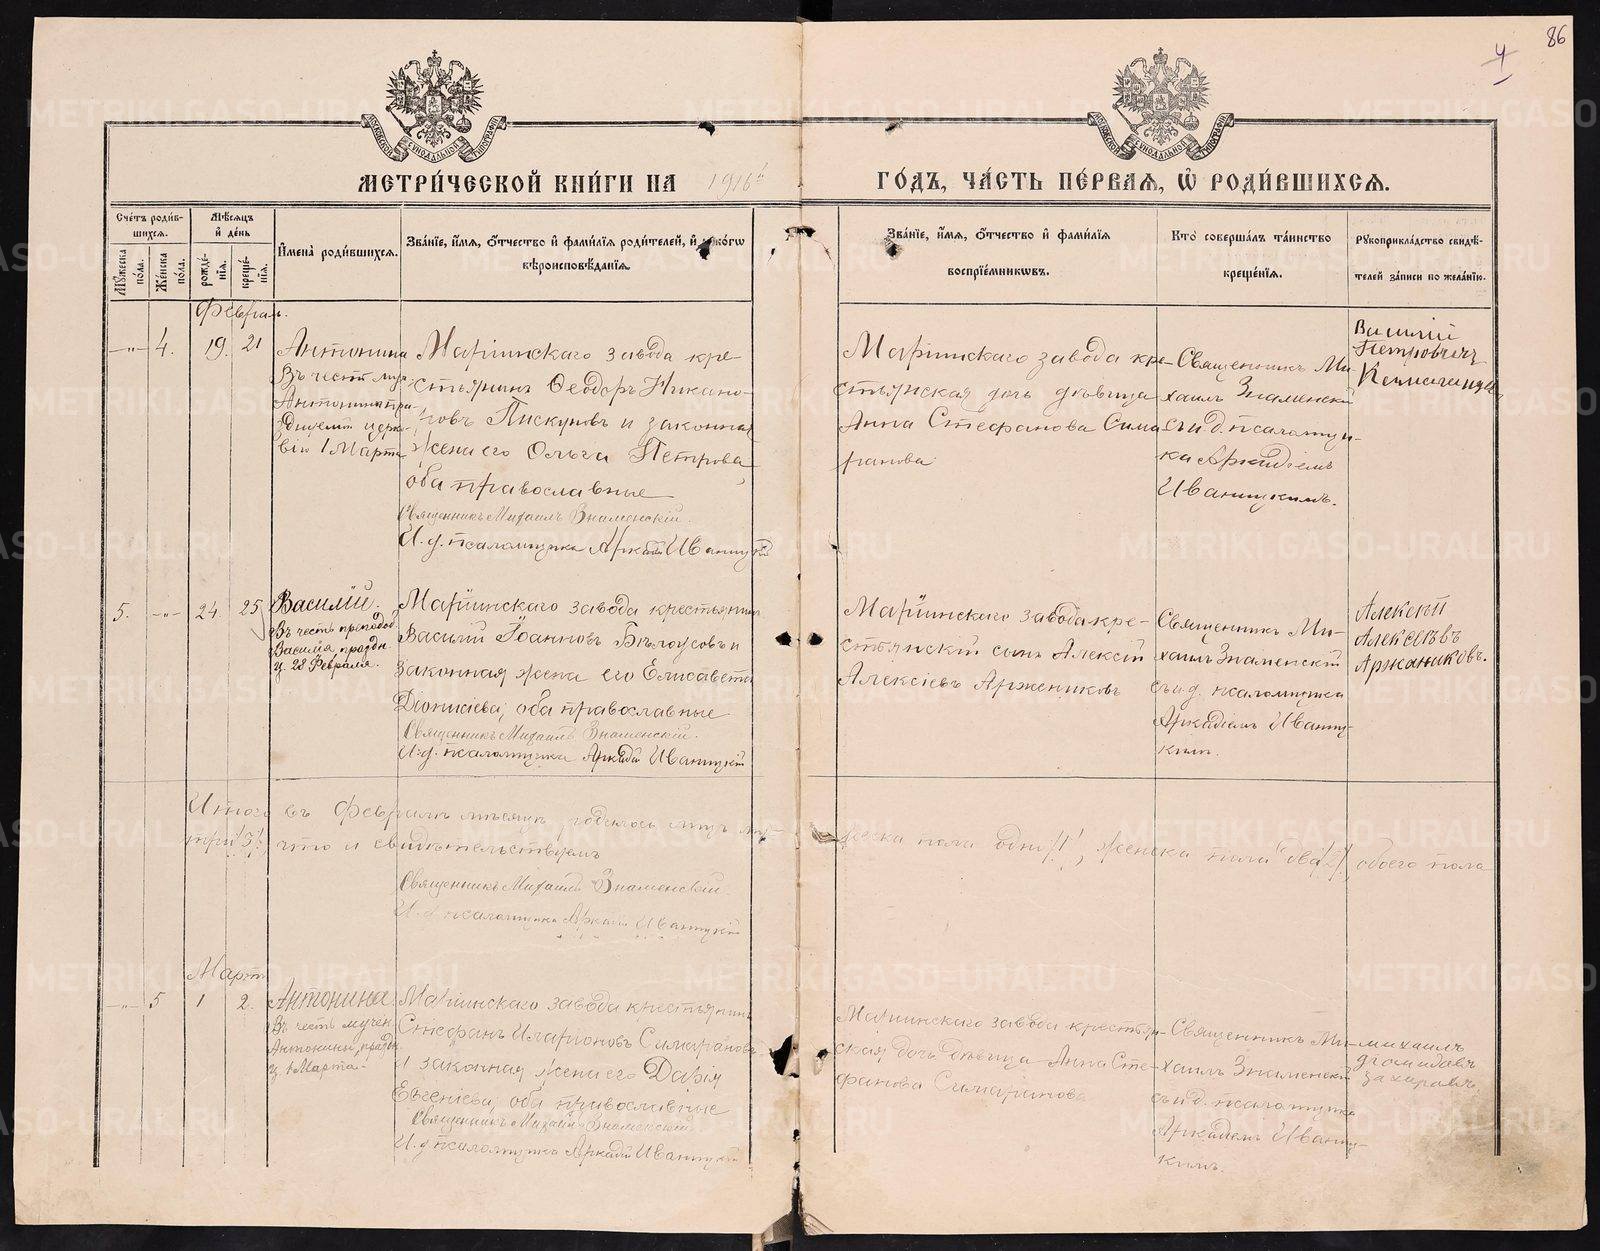 86
4
МЕТРИ́ЧЕСКОЙ КНИ́ГИ НА 1916й ГО́ДЪ, ЧА́СТЬ ПЕ́РВАЯ, Ѡ҆ РОДИ́ВШИХСЯ.
Сче́тъ роди́в-
шихся.
Му́жеска
пола.
Же́нска
по́ла.
Мѣсяцъ
и҆ де́нь
рожде́-
нїя.
креще́-
нїя.
И҆мена̀ роди́вшихся.
Зва́нїе, и҆́мя, ѻ҆́тчество и҆ фами́лїя роди́телей, и҆ како́гѡ
вѣроисповѣ́данїя.
Зва́нїе, и҆́мя, ѻ҆́тчество и҆ фами́лїя
воспрїе́мникѡвъ.
Кто̀ соверша́лъ та́инство
креще́нїя.
Рꙋкоприкла́дство свидѣ́-
телей за́писи по жела́нїю.
Февраль.
—"— 4. 19. 21
Антонина
Въ честь муч.
Антонины пра-
зднуемой церко-
вію 1 Марта
Маріинскаго завода кре-
стьянинъ Ѳеодоръ Никано-
ровъ Пискуновъ и законная
жена его Ольга Петрова,
оба православные
Священникъ Михаилъ Знаменскій.
И. д. псаломщика Аркадій Иваницкій
Маріинскаго завода кре-
стьянская дочь дѣвица
Анна Стефанова Сима-
ранова
Священникъ Ми-
хаилъ Знаменскій
съ и. д. псаломщи-
ка Аркадіемъ
Иваницкимъ.
Василій
Петровичъ
5. —"— 24 25
Василій.
Въ честь преподоб.
Василія, праздн.
ц. 28 Февраля.
Маріинскаго завода крестьянинъ
Василій Іоанновъ Бѣлоусовъ и
законная жена его Елисавета
Діонисіева, оба православные
Священникъ Михаилъ Знаменскій.
И. д. псаломщика Аркадій Иваницкій
Маріинскаго завода кре-
стьянскій сынъ Алексій
Алексіевъ Аржениковъ
Священникъ Ми-
хаилъ Знаменскій
съ и. д. псаломщика
Аркадіемъ Иваниц-
кимъ.
Алексѣй
Алексѣевъ
Аржаниковъ.
Итого въ Февралѣ мѣсяцѣ родилось лицъ му-
жеска пола одинъ /1/, женска пола два /2/, обоего пола
три /3/, что и свидѣтельствуемъ
Священникъ Михаилъ Знаменскій.
И. д. псаломщика Аркадій Иваницкій
Мартъ
—"— 5 1 2.
Антонина.
Въ честь мучен.
Антонины, праздн.
ц. 1 Марта.
Маріинскаго завода крестьянинъ
Стефанъ Иларіоновъ Симарановъ
и законная жена его Дарія
Евгеніева, оба православные
Священникъ Михаилъ Знаменскій.
И. д. псаломщика Аркадій Иваницкій
Маріинскаго завода крестьян-
ская дочь дѣвица Анна Сте-
фанова Симаранова
Священникъ Ми-
хаилъ Знаменскій
съ и. д. псаломщика
Аркадіемъ Иваниц-
кимъ.
михаилъ
захаравъ.
METRIKI.GASO-URAL.RU